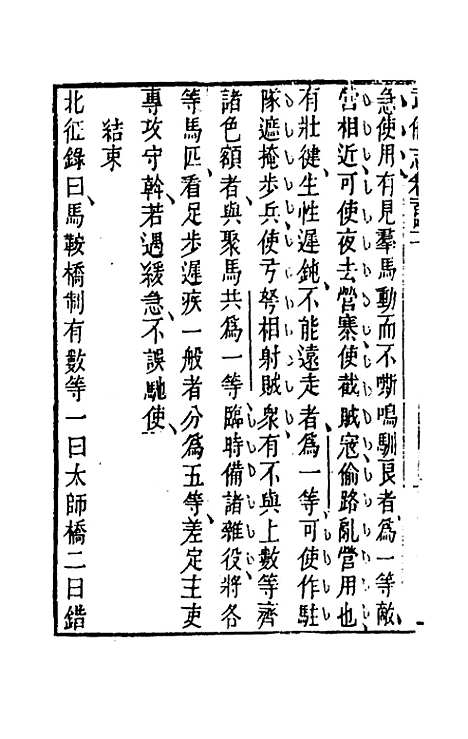 急使用有見羣馬動而不嘶鳴馴良者、爲一等敵、
營相近可使夜去營寨使截賊寇偷路亂營用也
有壯健、生性遲鈍、不能遠走者、爲一等可使作駐
隊遮掩步兵使弓弩相射賊衆有不與上數等齊
諸色額者、與聚馬共爲一等、臨時備諸雜役將各
等馬匹、看足步遲疾一般者分爲五等、差定主吏
專攻守斡、若遇緩急、不誤馳使、
結束
北征錄曰、馬鞍橋制有數等一曰太師橋二日錯